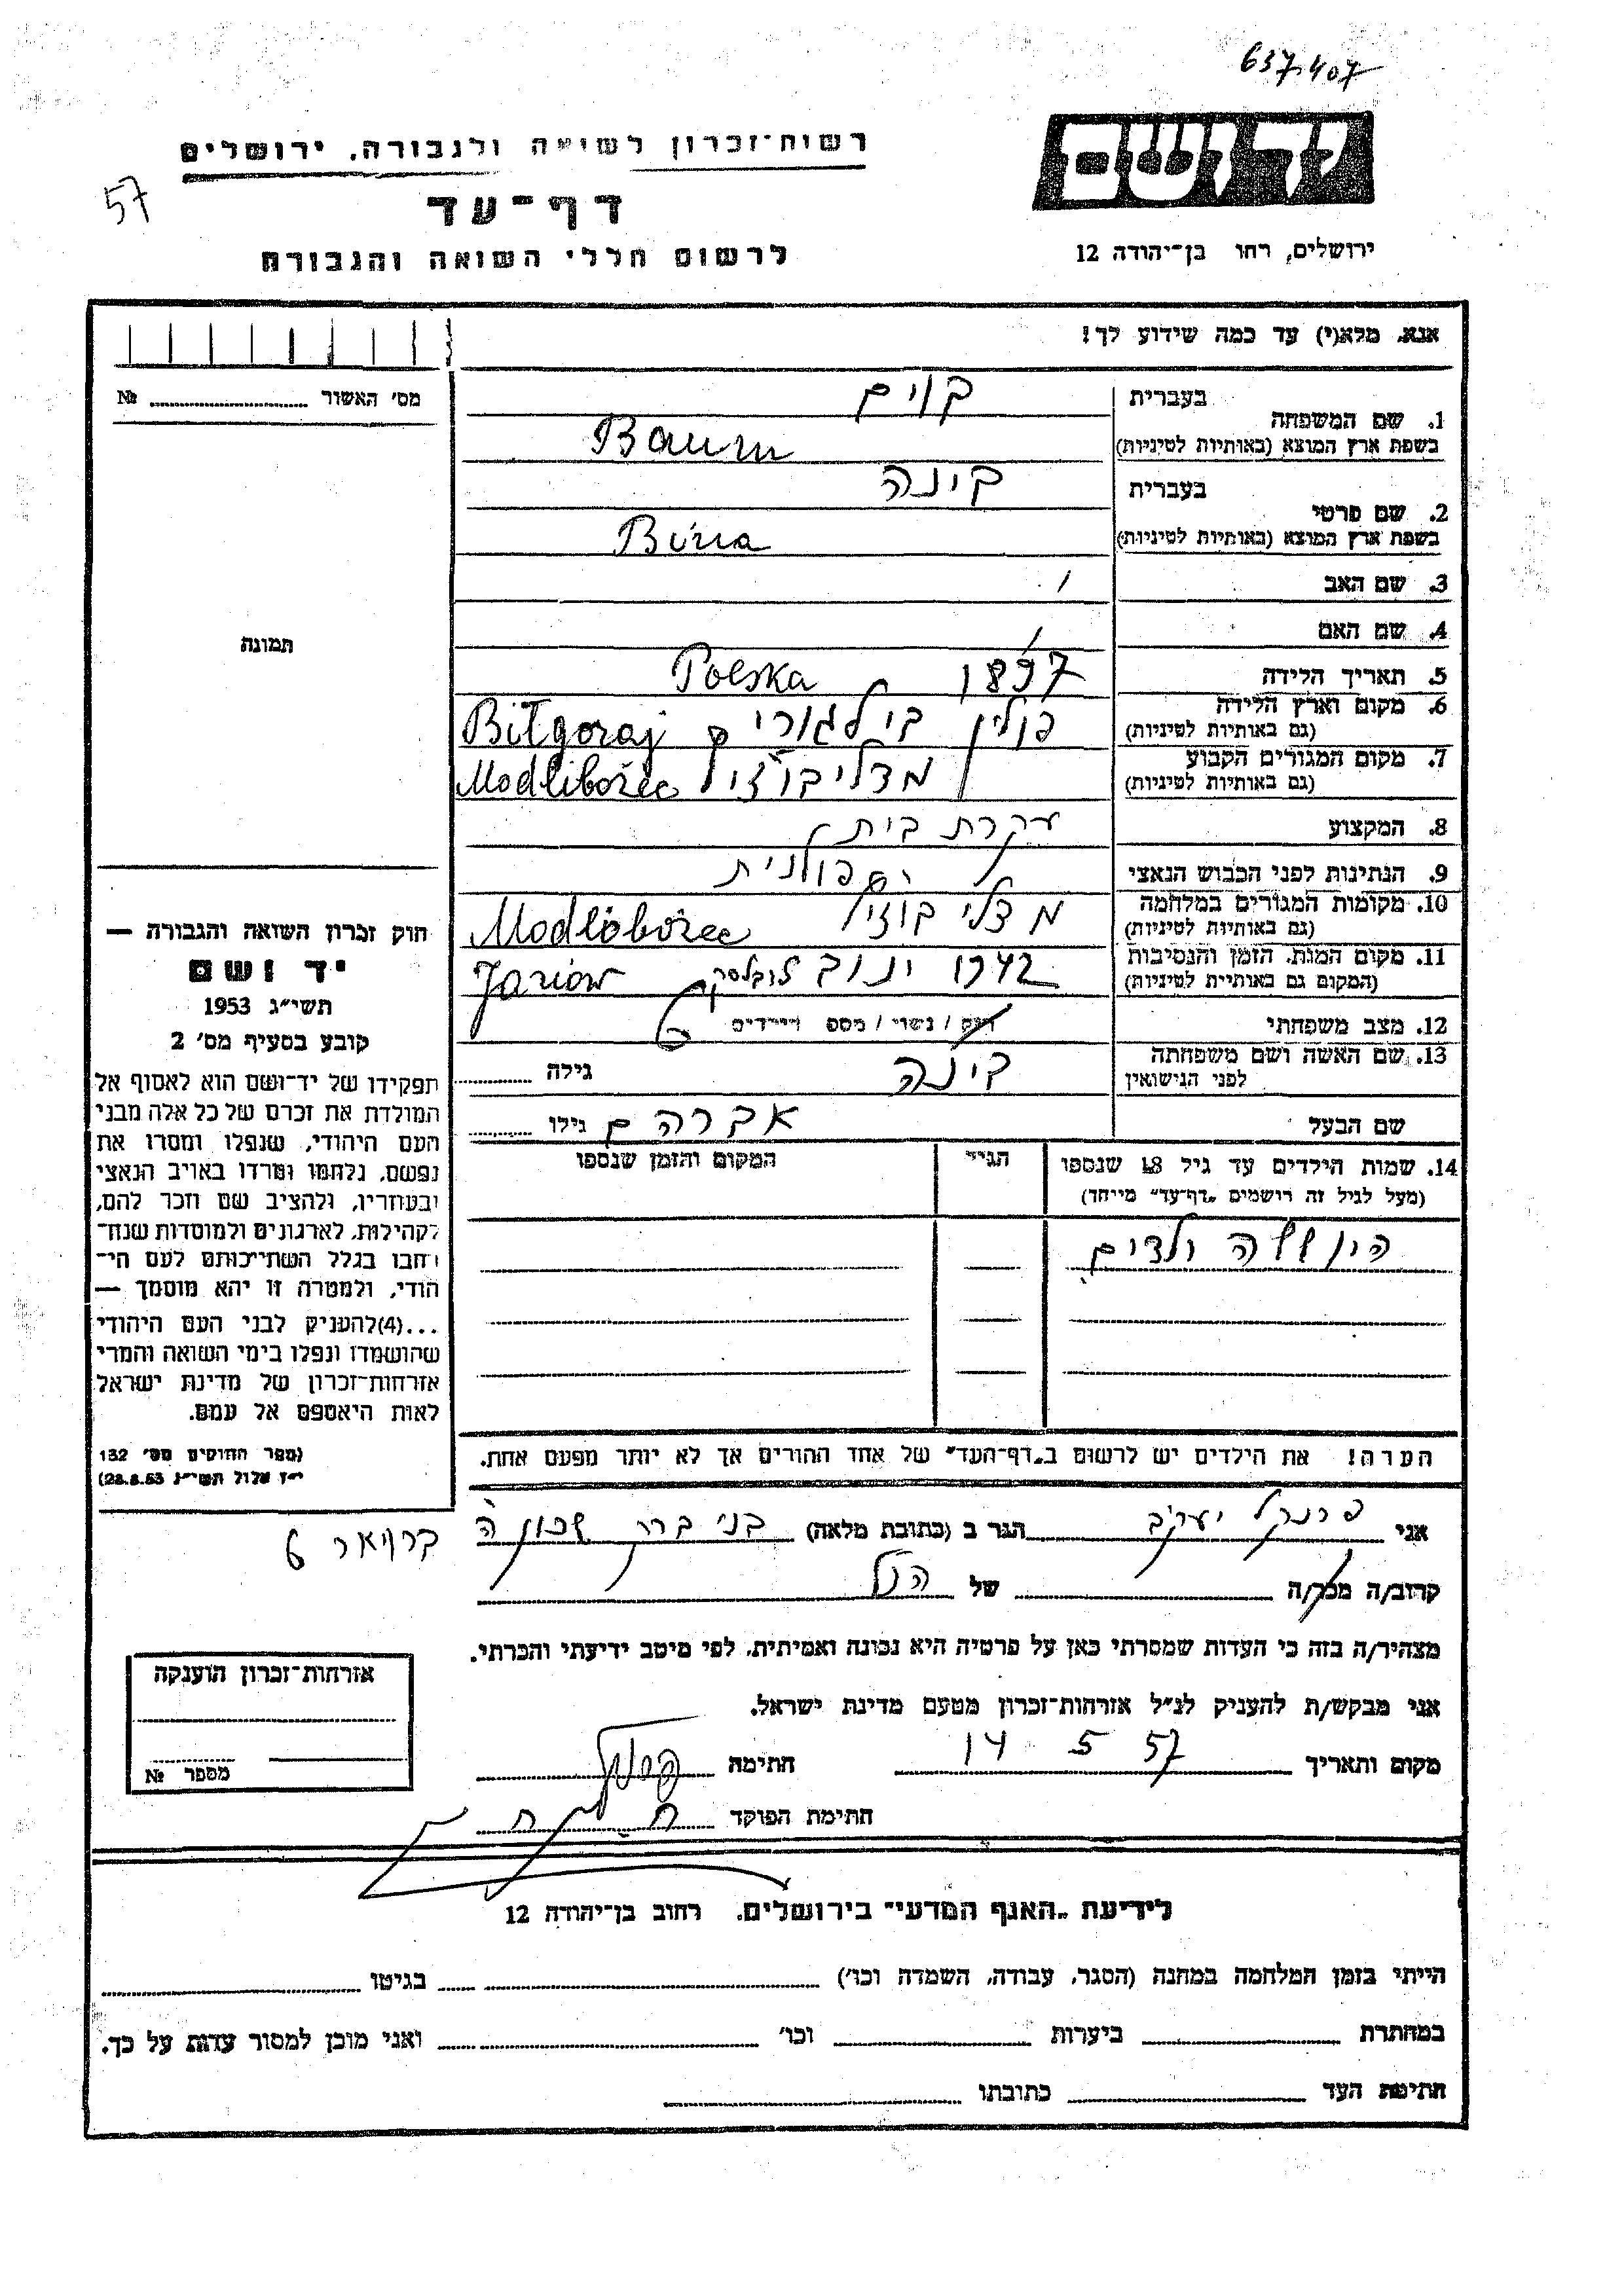 637407
רשות־זכרון לשואה ולגבורה, ירושלים
יד ושם
57
דף־עד
ירושלים, רחו בן־יהודה 12
לרשום חללי השואה והגבורה
אנא, מלא(י) עד כמה שידוע לך!
מס׳ האשור № 
1. שם המשפחה
בעברית בוים
בשפת ארץ המוצא (באותיות לטיניות) Baum
2. שם פרטי
בעברית בינה
בשפת ארץ המוצא (באותיות לטיניות) Bina
3. שם האב /
4. שם האם /
תמונה
5. תאריך הלידה 1897 Polska
6. מקום וארץ הלידה פולין בילגורי Bilgoraj
(גם באותיות לטיניות)
7. מקום המגורים הקבוע מדליבוז׳ץ Modliborzec
(גם באותיות לטיניות)
8. המקצוע עקרת בית
9. הנתינות לפני הכבוש הנאצי פולנית
10. מקומות המגורים במלחמה Modliborzec
(גם באותיות לטיניות)
11. מקום המות, הזמן והנסיבות 1942 ינוב לובלסקי Janów
(המקום גם באותיות לטיניות)
12. מצב משפחתי רוק / נשוי / מספ הילדים 6
13. שם האשה ושם משפחתה בינה גילה
לפני הנישואין
שם הבעל אברהם גילו
14. שמות הילדים עד גיל 18 שנספו הגיל המקום והזמן שנספו
(מעל לגיל זה רושמים „דף־עד״ מייחד)
היו ששה ילדים
הערה! את הילדים יש לרשום ב„דף־העד״ של אחד ההורים אך לא יותר מפעם אחת.
חוק זכרון השואה והגבורה —
יד ושם
תשי״ג 1953
קובע בסעיף מס׳ 2
תפקידו של יד־ושם הוא לאסוף אל
המולדת את זכרם של כל אלה מבני
העם היהודי, שנפלו ומסרו את
נפשם, נלחמו ומרדו באויב הנאצי
ובעוזריו, ולהציב שם וזכר להם,
לקהילות, לארגונים ולמוסדות שנח־
רבו בגלל השתייכותם לעם הי־
הודי, ולמטרה זו יהא מוסמך —
...(4)להעניק לבני העם היהודי
שהושמדו ונפלו בימי השואה והמרי
אזרחות־זכרון של מדינת ישראל
לאות היאספם אל עמם.
(ספר החוקים מס׳ 132
י״ז אלול תשי״ג 28.8.53)
אני פרנקל יעקב הגר ב (כתובת מלאה) בני ברק שכון ה
6
קרוב/ה מכר/ה של הנ״ל
מצהיר/ה בזה כי העדות שמסרתי כאן על פרטיה היא נכונה ואמיתית, לפי מיטב ידיעתי והכרתי.
אני מבקש/ת להעניק לנ״ל אזרחות־זכרון מטעם מדינת ישראל.
מקום ותאריך 14 5 57 חתימה
חתימת הפוקד
אזרחות־זכרון הוענקה
מספר №
לידיעת „האגף המדעי״ בירושלים, רחוב בן־יהודה 12
הייתי בזמן המלחמה במחנה (הסגר, עבודה, השמדה וכו׳) בגיטו
במחתרת ביערות וכו׳ ואני מוכן למסור עדות על כך.
חתימת העד כתובתו